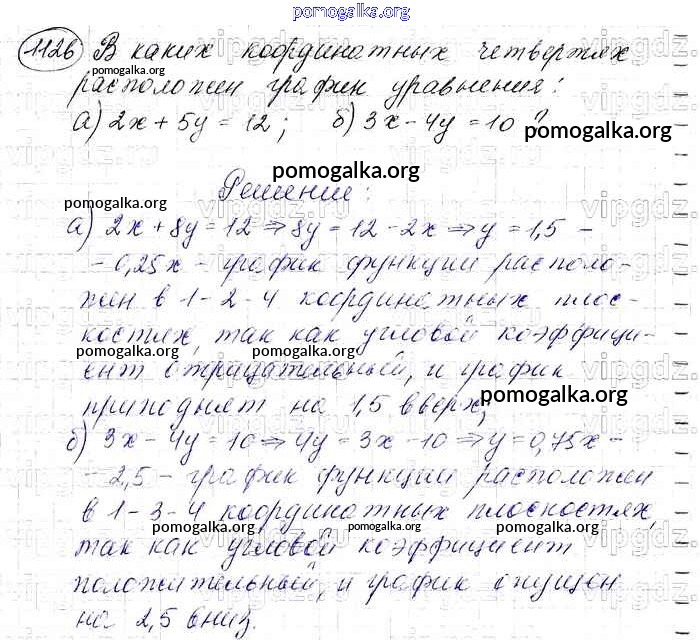 pomogalka.org
1126 В каких координатных четвертях
pomogalka.org
расположен график уравнения:
а) 2x + 5y = 12; б) 3x - 4y = 10 ?
pomogalka.org
pomogalka.org
Решение:
pomogalka.org
а) 2x + 8y = 12 ⇒ 8y = 12 - 2x ⇒ y = 1,5 -
- 0,25x - график функции располо-
жен в 1-2-4 координатных плос-
костях, так как угловой коэффици-
pomogalka.org pomogalka.org
ент отрицательный, и график
pomogalka.org
приподнят на 1,5 вверх;
б) 3x - 4y = 10 ⇒ 4y = 3x - 10 ⇒ y = 0,75x -
- 2,5 - график функции расположен
в 1-3-4 координатных плоскостях,
pomogalka.org pomogalka.org pomogalka.org
так как угловой коэффициент
положительный, и график опущен
на 2,5 вниз.
pomogalka.org